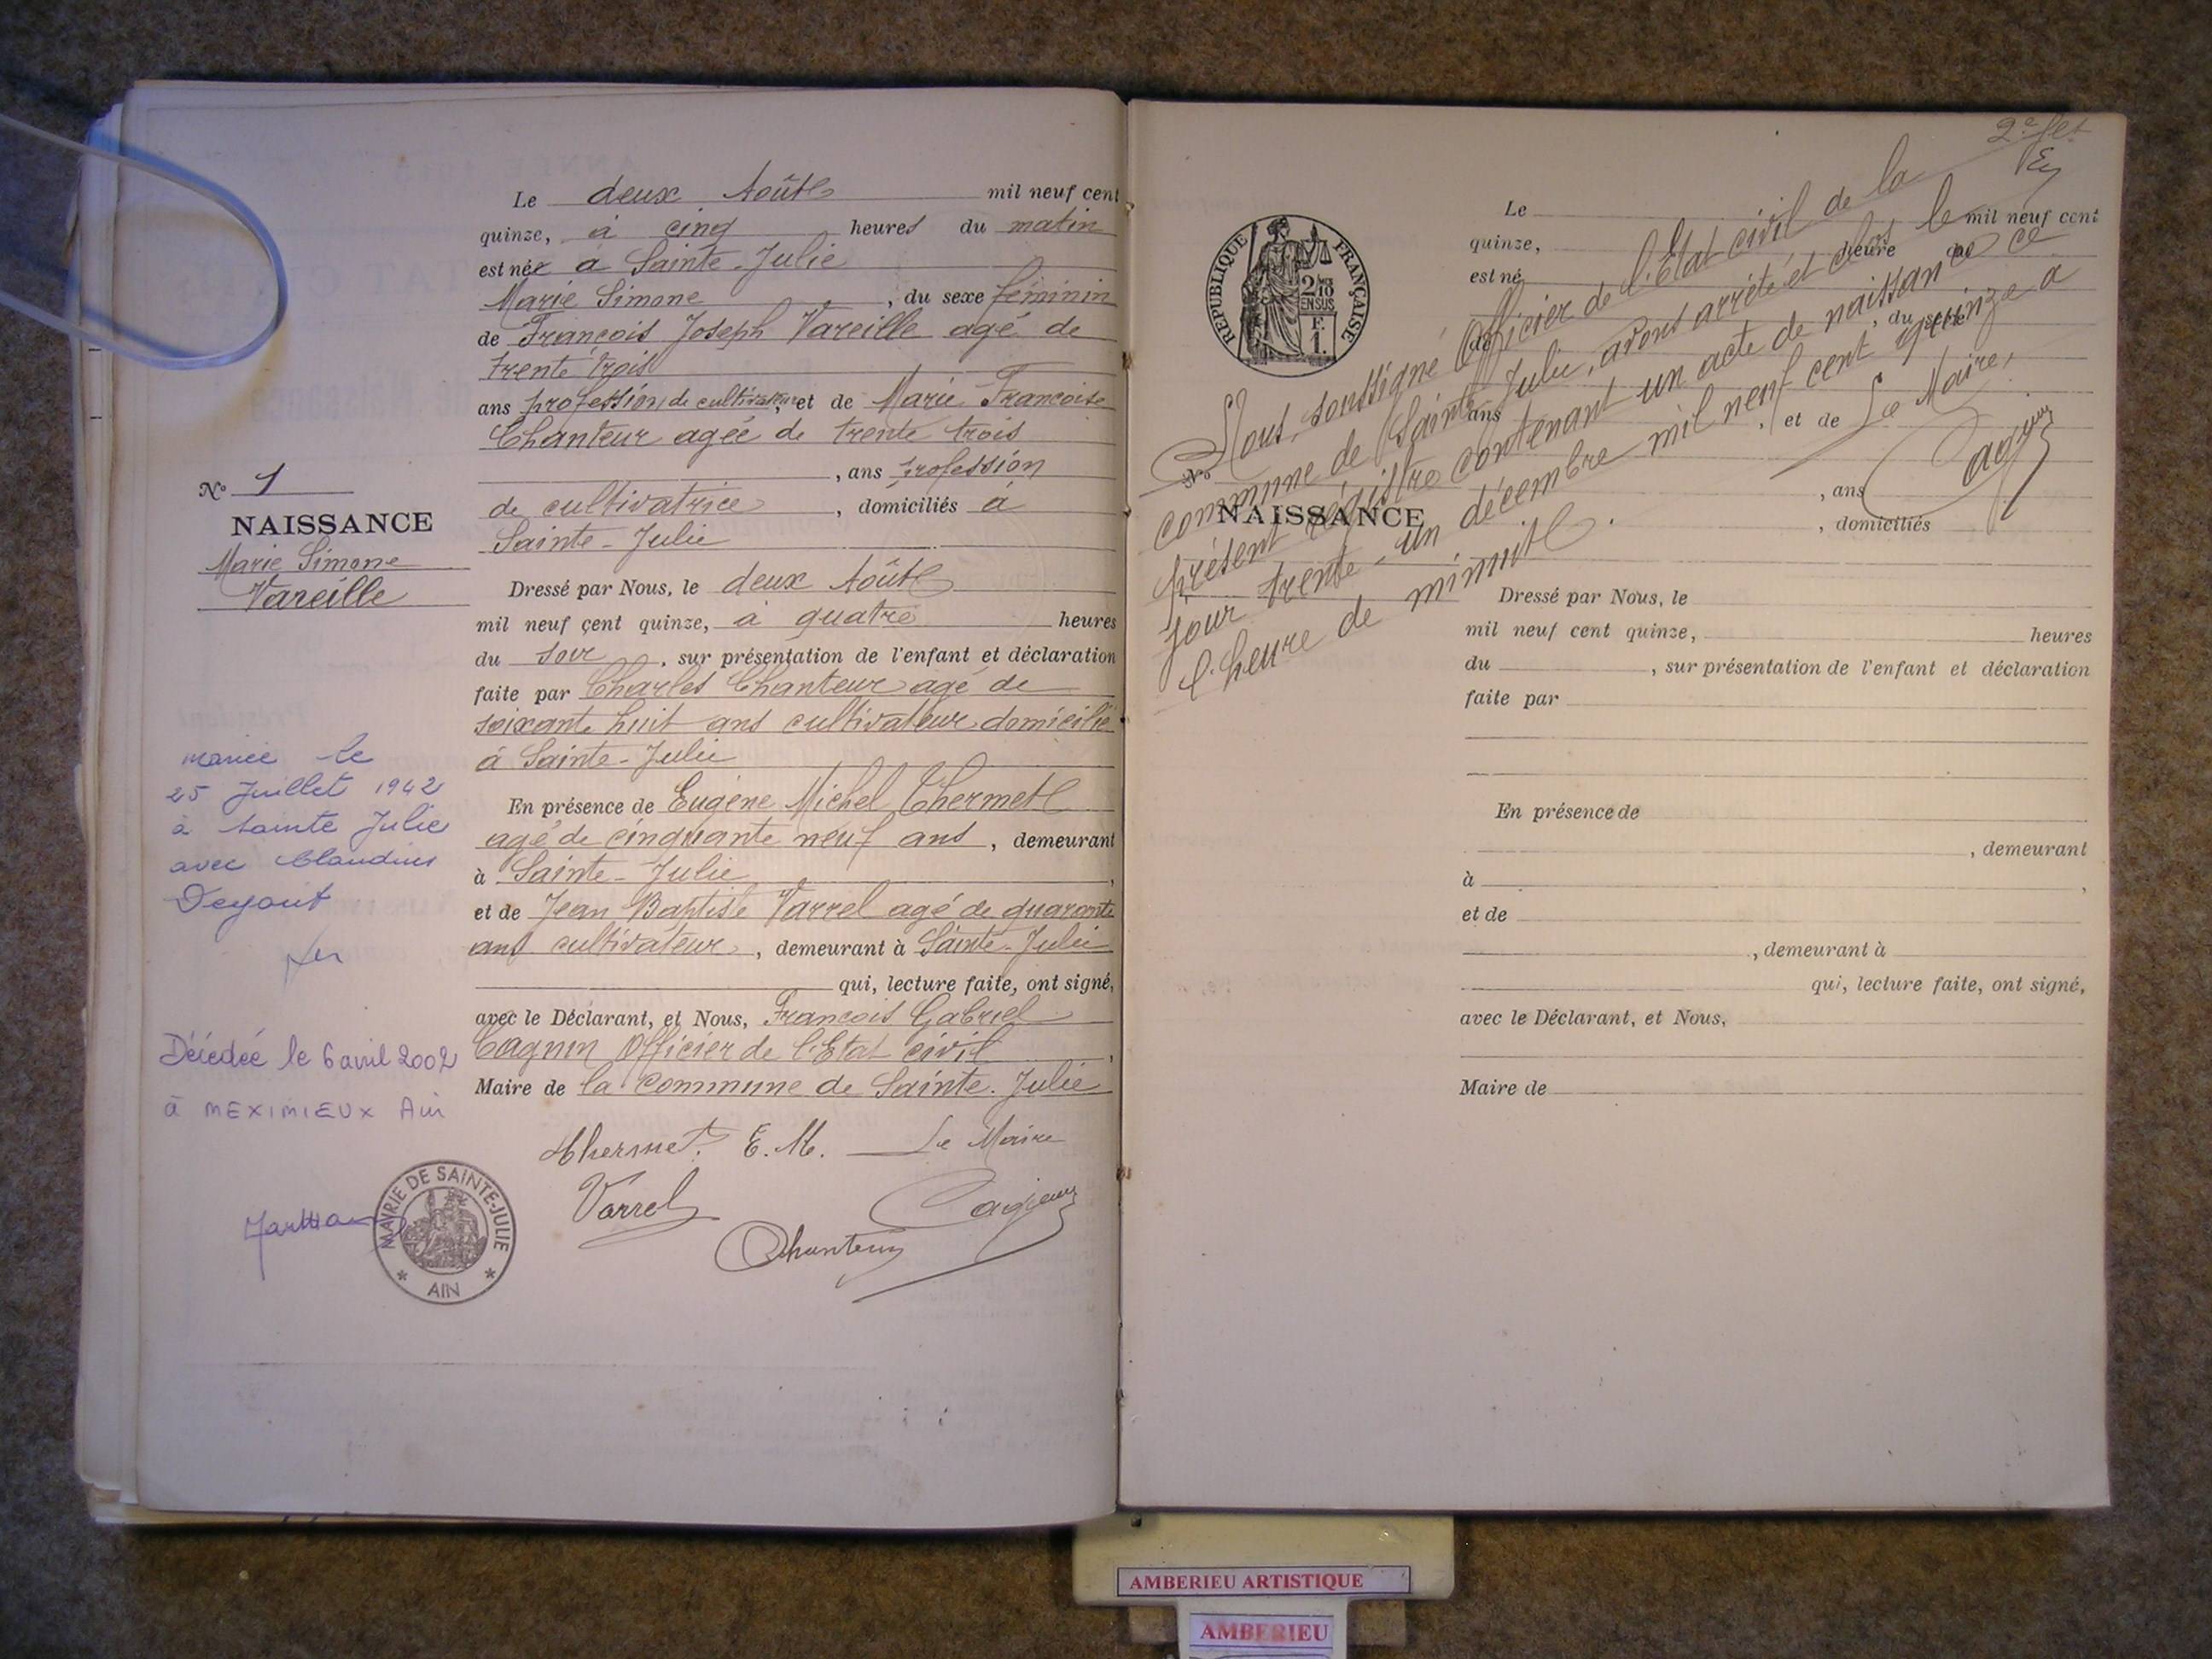 Le deux Août mil neuf cent
quinze, à cinq heures du matin
est née à Sainte-Julie
Marie Simone, du sexe féminin
de François Joseph Vareille agé de
trente trois
ans profession de cultivateur, et de Marie Françoise
Chanteur agée de trente trois
, ans profession
de cultivatrice, domiciliés à
Sainte-Julie
N° 1
NAISSANCE
Marie Simone
Vareille
Dressé par Nous, le deux Août
mil neuf cent quinze, à quatre heures
du soir, sur présentation de l'enfant et déclaration
faite par Charles Chanteur agé de
soixante huit ans cultivateur domicilié
à Sainte-Julie
En présence de Eugène Michel Chermet
agé de cinquante neuf ans, demeurant
à Sainte-Julie,
et de Jean Baptiste Varrel agé de quarante
ans cultivateur, demeurant à Sainte-Julie
qui, lecture faite, ont signé,
avec le Déclarant, et Nous, François Gabriel
Officier de l'Etat civil,
Maire de la commune de Sainte-Julie
mariée le
25 Juillet 1942
à Sainte Julie
avec Claudius
Décédée le 6 avril 2002
à MEXIMIEUX Ain
Chermet. E. M. Le Maire
Varrel
Chanteur
MAIRIE DE SAINTE-JULIE
* AIN *
2e flet
RÉPUBLIQUE FRANÇAISE
2/10
EN SUS
F.
1.
Le mil neuf cent
quinze, heure du
est né
, du sexe
de
ans, et de
, ans
, domiciliés
N°
NAISSANCE
Nous, soussigné Officier de l'Etat civil de la
commune de Sainte Julie, avons arrêté et clos le
présent régistre contenant un acte de naissance ce
jour trente-un décembre mil neuf cent quinze à
l'heure de minuit.
Le Maire,
Dressé par Nous, le
mil neuf cent quinze, heures
du, sur présentation de l'enfant et déclaration
faite par
En présence de
, demeurant
à,
et de
, demeurant à
qui, lecture faite, ont signé,
avec le Déclarant, et Nous,
Maire de
AMBERIEU ARTISTIQUE
AMBERIEU